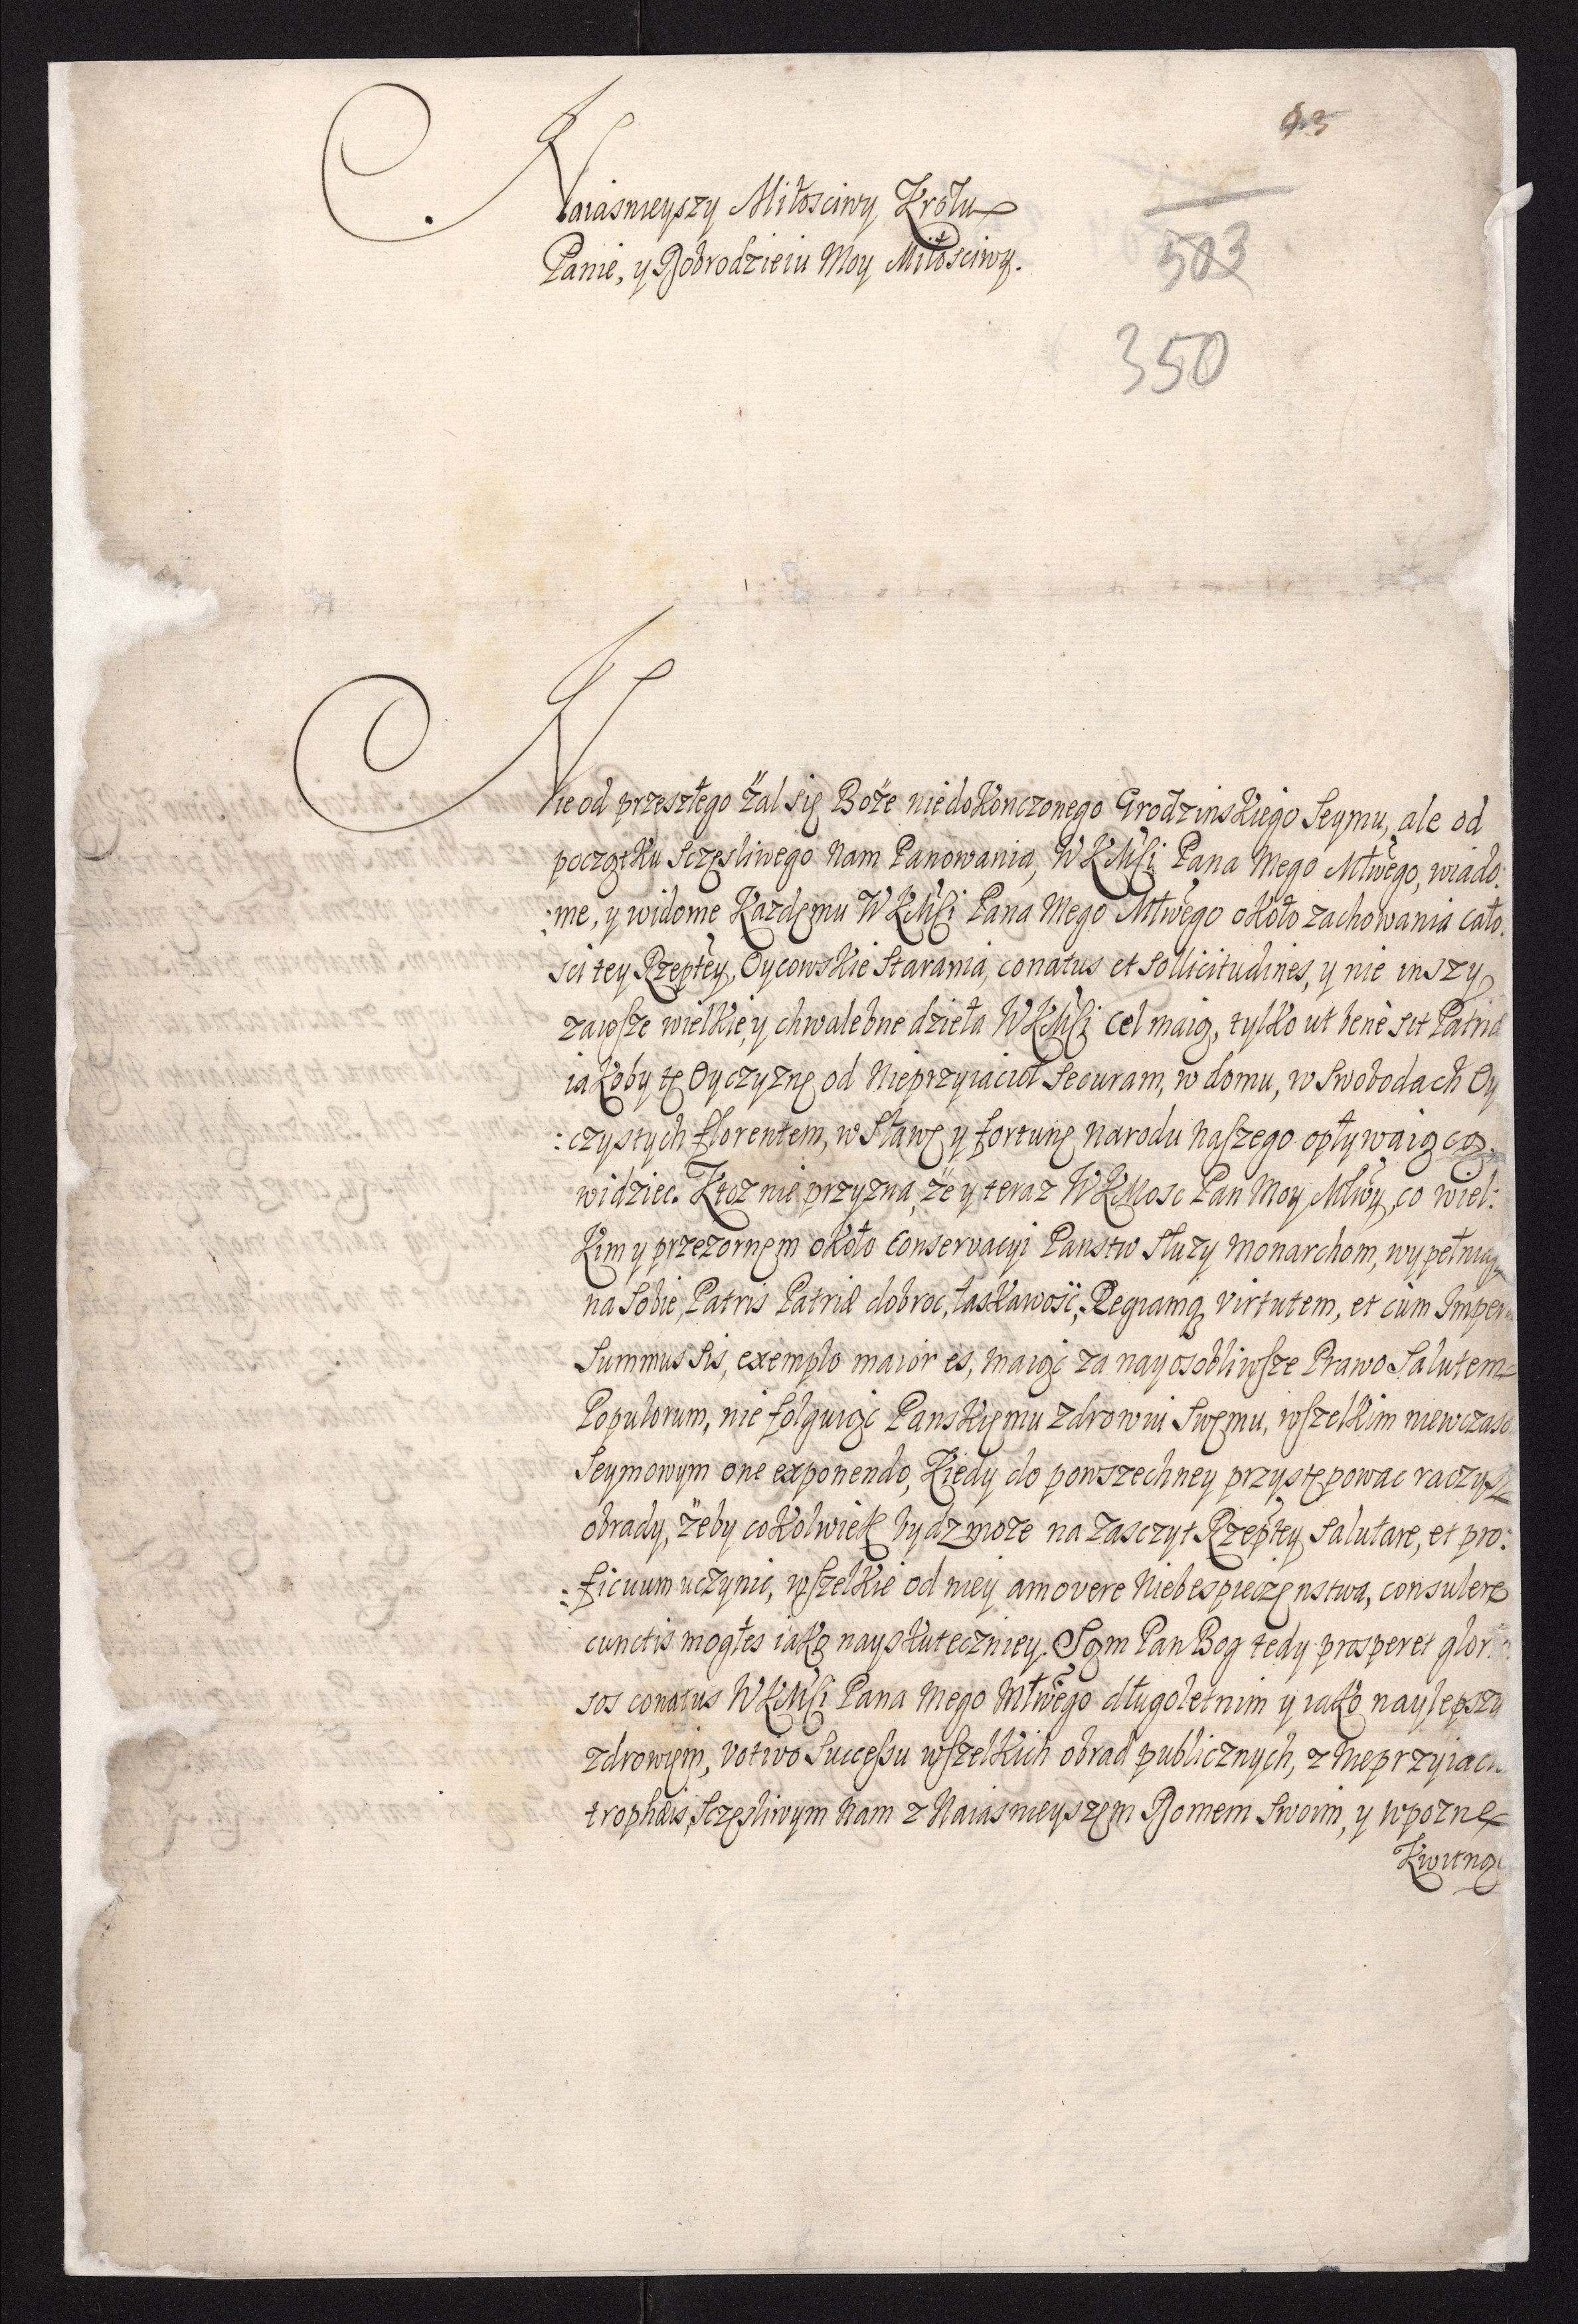 43
Naiasnieyszy Miłosciwy Krolu
Panie, y Dobrodzieiu Moy Miłosciwy.
503
350
Nie od przeszłego żal się Boże niedokonczonego Grodzinskiego Seymu, ale od
początku Sczęsliwego Nam Panowania, WKMsci Pana Mego Młwego, wiado:
:me, y widome Kazdemu WKMsci Pana Mego Młwego około zachowania cało:
sci tey Rzeptey, Oycowskie Starania, conatus et Sollicitudines, y nie inszy
zawsze wielkie, y chwalebne dzieła WKMsci Cel maią, tylko ut bene sit Patriæ
iakoby tę Oyczyznę od Nieprzyiacioł Securam, w domu, w Swobodach Oy
:czystych florentem, w Sławę y fortunę Narodu Naszego opływaiącą,
widziec. Ktoz nie przyzna, że y teraz WKMosc Pan Moy Młwy, co wiel:
kim y przezornem około Conservacyi Panstw Służy Monarchom, wypełniaiąc
na Sobie, Patris Patriæ dobroc, łaskawość, Regiamq virtutem, et cum Imper
Summus Sis, exemplo maior es, maiąc za nayosobliwsze Prawo Salutem
Populorum, nie folguiąc Panskiemu Zdrowiu Swemu, wszelkim niewczaso
Seymowym one exponendo, Kiedy do powszechney przystępowac raczysz
obrady, żeby cokolwiek bydz może na Zasczyt Rzeptey Salutare, et pro:
:ficuum uczynic, wszelkie od niey amovere Niebespieczęnstwa, consulere
cunctis mogłes iako nayskuteczniey. Sąm Pan Bog tedy prosperet glor
sos conatus WKMsci Pana Mego Młwego długoletnim y iako naylepszy
zdrowiem, votivo Successu wszelkich obrad publicznych, z Nieprzyiacioł
trophæis, Sczęsliwym Nam z Naiasnieyszęm Domem Swoim, y wpozne
Kwitną